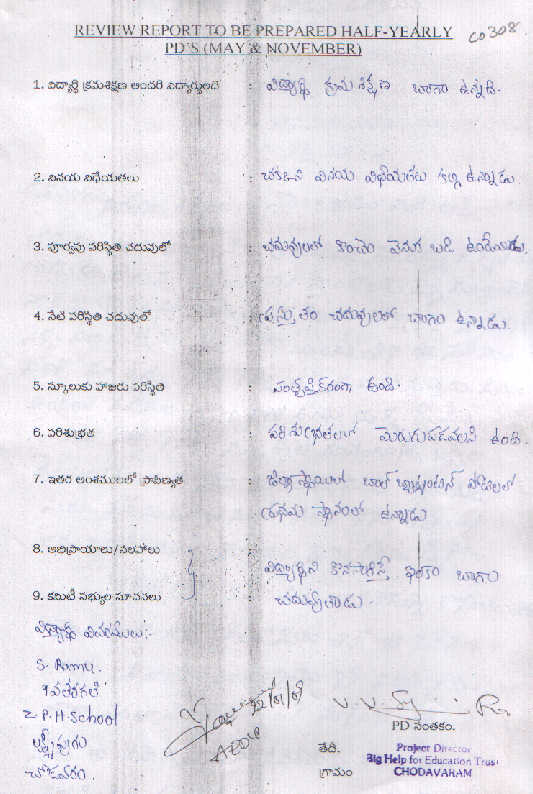 REVIEW REPORT TO BE PREPARED HALF-YEARLY
CO308
PD'S (MAY & NOVEMBER)
1. విద్యార్థి క్రమశిక్షణ అందరి విద్యార్థులతో : విద్యార్థి క్రమశిక్షణ బాగా ఉన్నది.
2. వినయ విధేయతలు : వినయ విధేయతలు కల్గి ఉన్నాడు.
3. పూర్వపు పరిస్థితి చదువులో : చదువులలో కొంచెం వెనుక బడి ఉండేవాడు.
4. నేటి పరిస్థితి చదువులో : ప్రస్తుతం చదువులలో బాగా ఉన్నాడు.
5. స్కూలుకు హాజరు పరిస్థితి : సంతృప్తికరంగా ఉంది.
6. పరిశుభ్రత : పరిశుభ్రతలో మెరుగుపడవలసి ఉంది.
7. ఇతర అంశములలో ప్రావీణ్యత : జిల్లా స్థాయిలో బాల్ బ్యాడ్మింటన్ పోటీలలో
ప్రథమ స్థానంలో ఉన్నాడు
8. అభిప్రాయాలు/సలహాలు
: విద్యార్థిని కొనసాగిస్తే ఇంకా బాగా
9. కమిటీ సభ్యుల సూచనలు : చదువుతాడు.
విద్యార్థి వివరములు:-
S. Ramu.
9వ తరగతి
Z.P.H.School
లక్ష్మీపురం
చోడవరం.
22/01/07
PD సంతకం.
తేది.
గ్రామం
Project Director
Big Help for Education Trust
CHODAVARAM